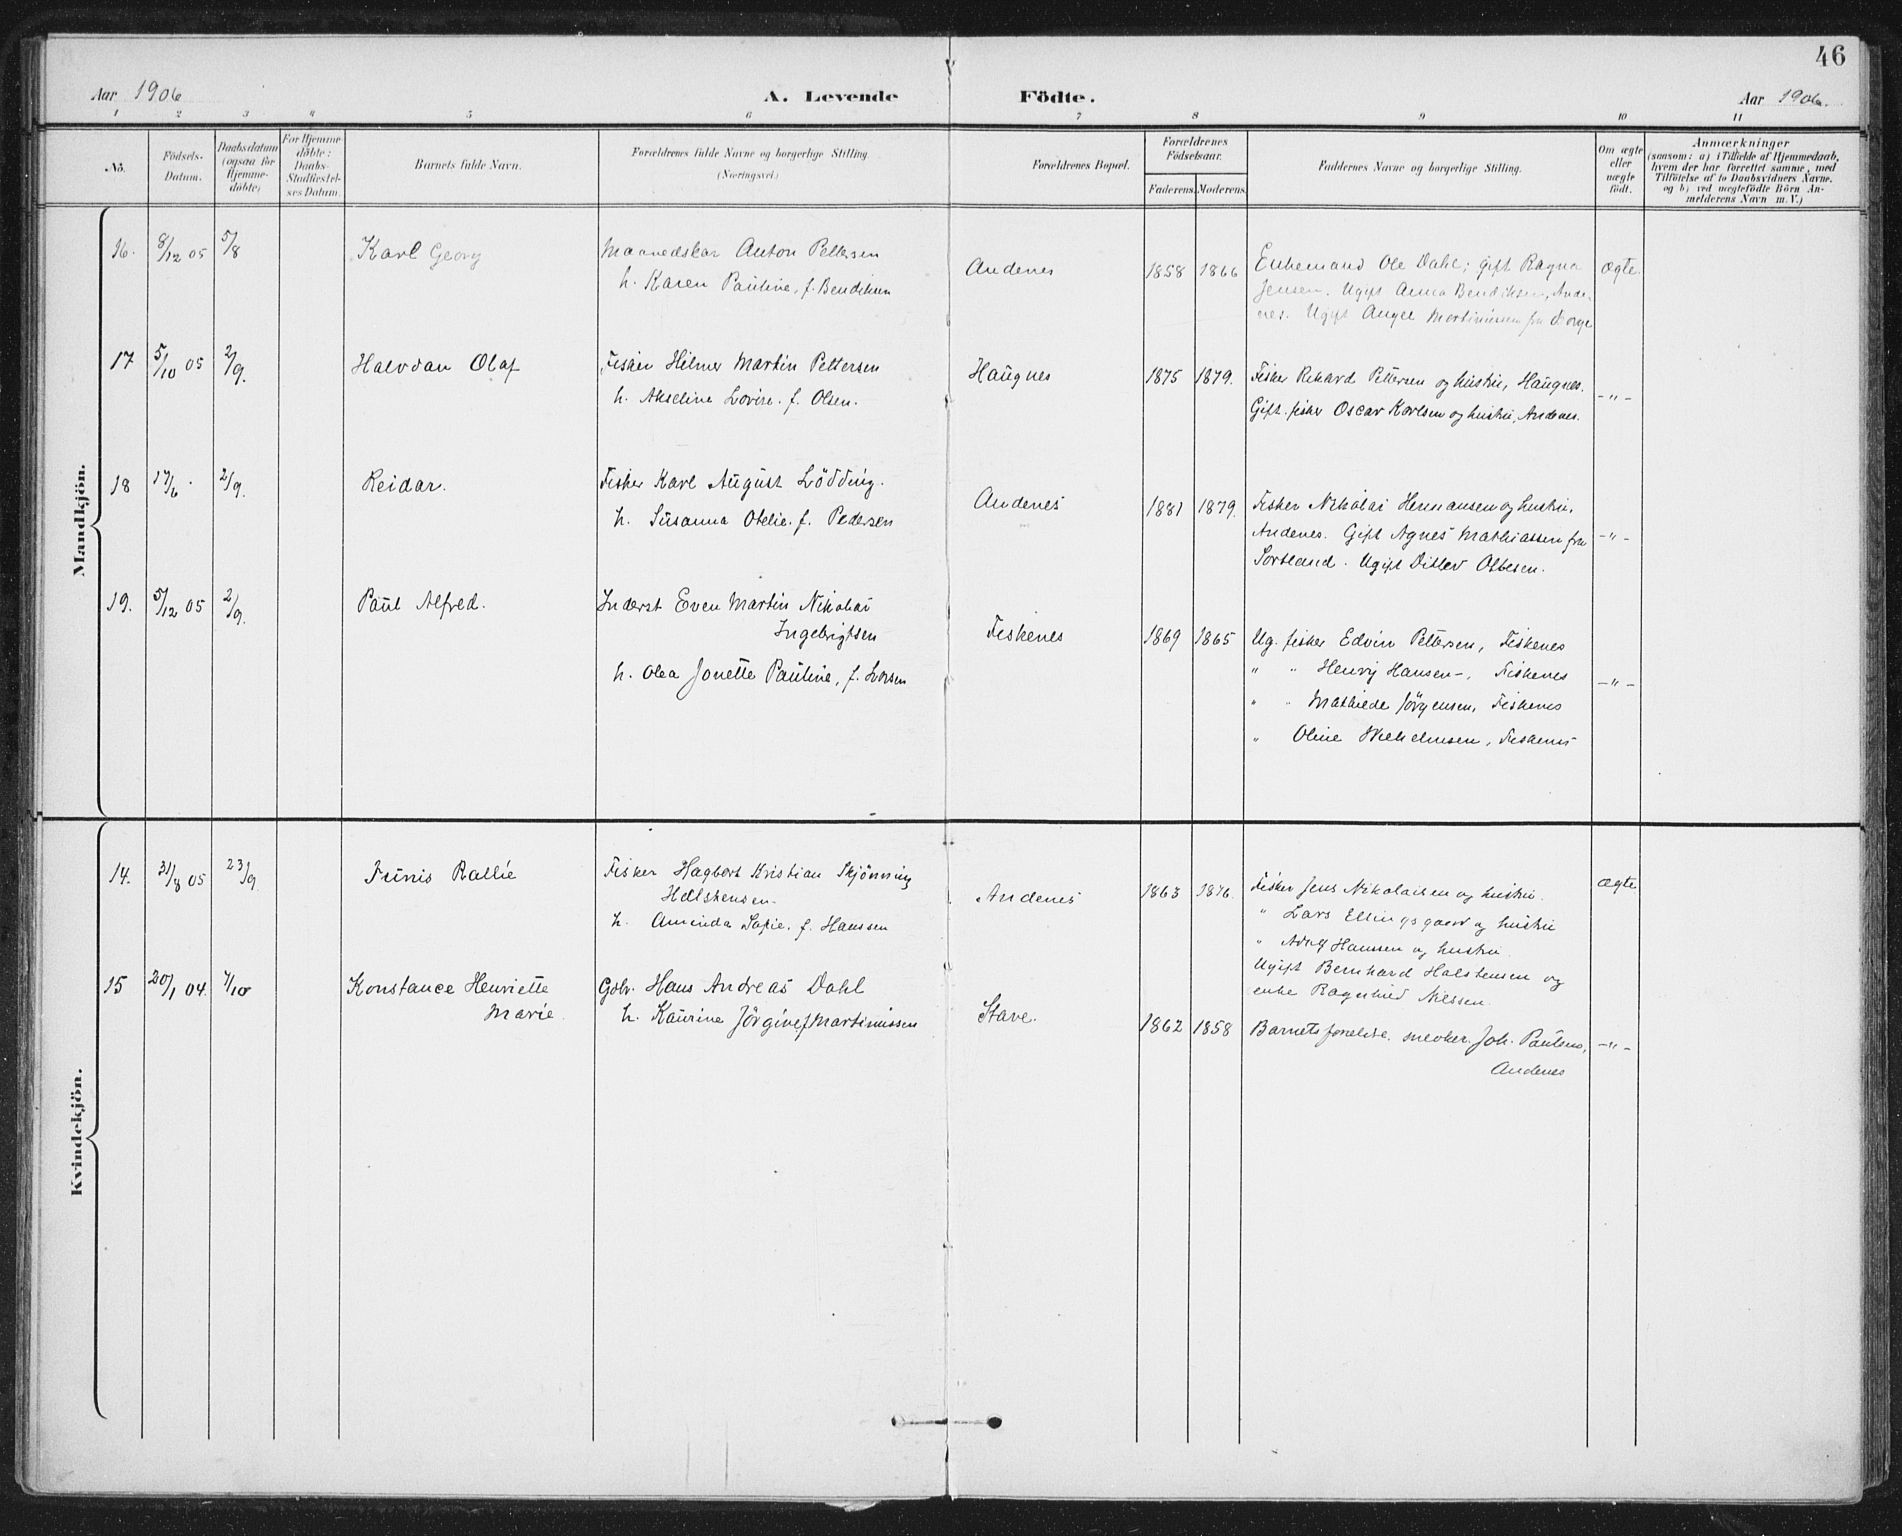 46
Aar 1906
A. Levende Födte.
Aar 1906.
1 2 3 4 5 6 7 8 9 10 11
No.
Födsels-Datum.
Daabsdatum (ogsaa for Hjemme-döbte)
For Hjemme-döbte: Daabs-Stadfæstelses Datum.
Barnets fulde Navn.
Forældrenes fulde Navne og borgerlige Stilling
(Næringsvei)
Forældrenes Bopæl.
Forældrenes Födselsaar.
Faderens. Moderens.
Faddernes Navne og borgerlige Stilling.
Om ægte eller uægte födt.
Anmærkninger
(saasom: a) i Tilfælde af Hjemmedaab,
hvem der har forrettet samme, med
Tilföielse af to Daabsvidners Navne.
og b) ved uægtefödte Börn An-
melderens Navn m. V.)
Mandkjön.
16. 8/12 05 5/8 Karl Georg
Maanedskar Anton Pettersen
h. Karen Pauline, f. Bendiksen
Andenes 1858 1866
Enkemand Ole Dahl; gift Ragna
Jensen. Ugift Anna Bendiksen, Ande-
nes. Ugift Angel Martinussen fra
ægte.
17 5/10 05 2/9. Halvdan Olaf
Fisker Hilmer Martin Pettersen
h. Akseline Lovise. f. Olsen.
Haugnes 1875 1879.
Fisker Rikard Pettersen og hustru, Haugnes.
Gift. fisker Oscar Karlsen og hustru, Andenes.
-"-
18 17/6 2/9. Reidar.
Fisker Karl August Lödding.
h. Susanna Otelie. f. Pedersen
Andenes 1881 1879.
Fisker Nikolai Hermansen og hustru,
Andenes. Gift Agnes Mathiassen fra
Sortland. Ugift Ditlev Ottesen.
-"-
19. 5/12 05 2/9. Paul Alfred.
Inderst Even Martin Nikolai
Ingebrigtsen
h. Olea Jonette Pauline, f. Larsen
Fiskenes 1869 1865
Ug. fisker Edvin Pettersen, Fiskenes
" " Henrij Hansen-, Fiskenes
" " Mathilde Jörgensen, Fiskenes
" Oline Wilhelmsen, Fiskenes
-"-
Kvindekjön.
14. 31/8 05 23/9. Funis Rallie
Fisker Hagbart Kristian Skjönning
Halstensen.
h. Aminda Sofie. f. Hanssen
Andenes 1863 1876.
Fisker Jens Nikolaisen og hustru.
" Lars Ellingsgaard og hustru
" Adolf Hanssen og hustru.
Ugift Bernhard Halstensen og
enke Ragnhild Nilssen.
ægte
15 20/1 04. 7/10 Konstance Henriette
Marie.
Gbr. Hans Andreas Dahl
h. Kaurine Jörgine f Martinussen
Stave. 1862 1858
Barnets forældre. snedker. Joh. Paulens,
Andenes
-"-